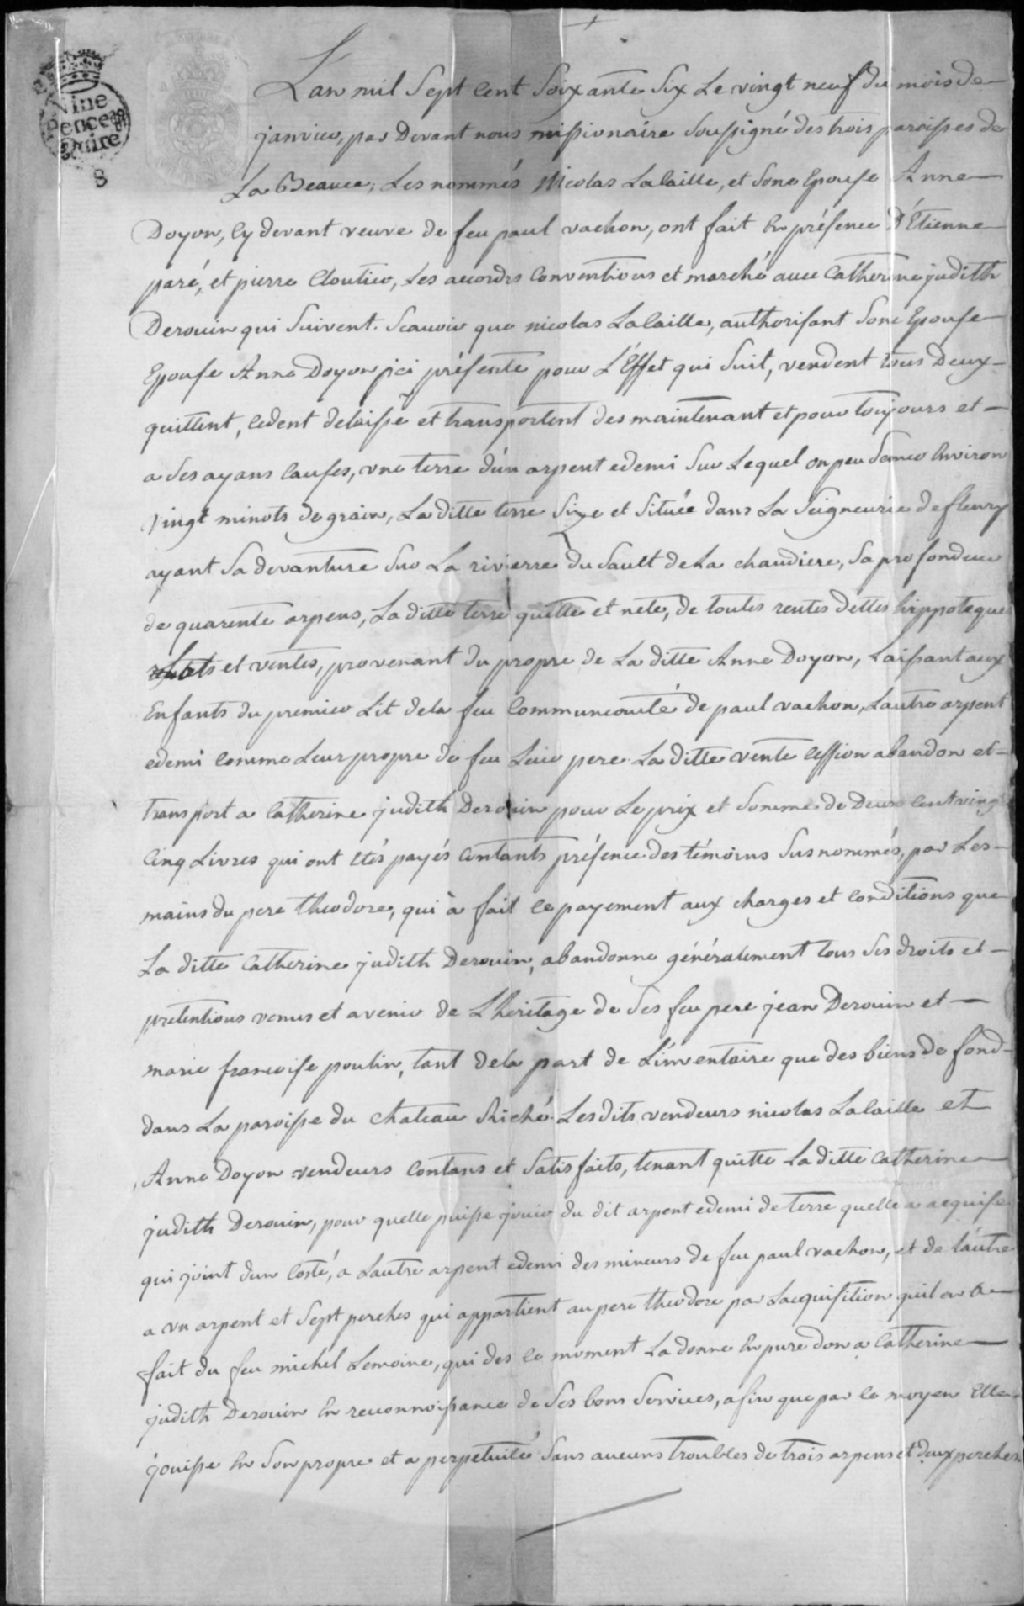 Nine
Pence
Quire
8
L'an mil Sept Cent Soixante Six Le vingt neuf du mois de
janvier, par Devant nous missionaire Soussigné des trois paroisses de
La Beauce, Les nommés Nicolas Lalaille, et Sone Epouse Anne
Doyon, Cy devant veuve de feu paul vachon, ont fait En présence D'Etienne
paré, et pierre Cloutier, Les accords Conventions et marché avec Catherine judith
Derouin qui Suivent. Scauoir que nicolas Lalaille, authorisant Sone Epouse
Epouse Anne Doyon ici présente pour L'Effet qui Suit, vendent tous Deux
quittent, Cedent delaisse et transportent des maintenant et pour toujours et
a Ses ayans Causes, vne terre d'un arpent edemi Sur Lequel on peu Semer Environ
vingt minots de grain, La ditte terre Size et Située dans La Seigneurie de fleury
ayant Sa devanture Sur La rivierre du Sault de La chaudiere, Sa profondeur
de quarente arpens, La ditte terre quitte et nete, de toutes rentes dettes hippoteques
Lots et ventes, provenant du propre de La ditte Anne Doyon, Laissant aux
Enfants du premier Lit dela feu Communeauté de paul vachon, Lautre arpent
edemi Comme Leur propre de feu Leur pere. La ditte vente Cession abandon et
transport a Catherine judith Derouin pour Le prix et Somme de Deux Cent vingt
Cinq Livres qui ont étés payés Contants présence des témoins Susnommés, par Les
mains du pere theodore, qui à fait ce payement aux charges et Conditions que
La ditte Catherine judith Derouin, abandonne généralement tous Ses droits et
pretentions venus et avenir de L'heritage de Ses feu pere jean Derouin et
marie francoise poulin, tant dela part de L'inventaire que des biens de fond
dans La paroisse du chateau Riché. Lesdits vendeurs nicolas Lalaille et
Anne Doyon vendeurs Contans et Satisfaits, tenant quitte La ditte Catherine
judith Derouin, pour quelle puisse jouir du dit arpent edemi de terre quelle a acquise
qui joint dun Costé, a Lautre arpent edemi des mineurs de feu paul vachon, et de l'autre
a vn arpent et Sept perches qui appartient au pere theodore par Lacquisition quil en a
fait du feu michel Lemoine, qui des ce moment La donne En pure don a Catherine
judith Derouin En reconnoissance de Ses bons Services, afin que par ce moyen Elle
jouisse En Son propre et a perpetuité Sans aucuns troubles de trois arpens et deux perches